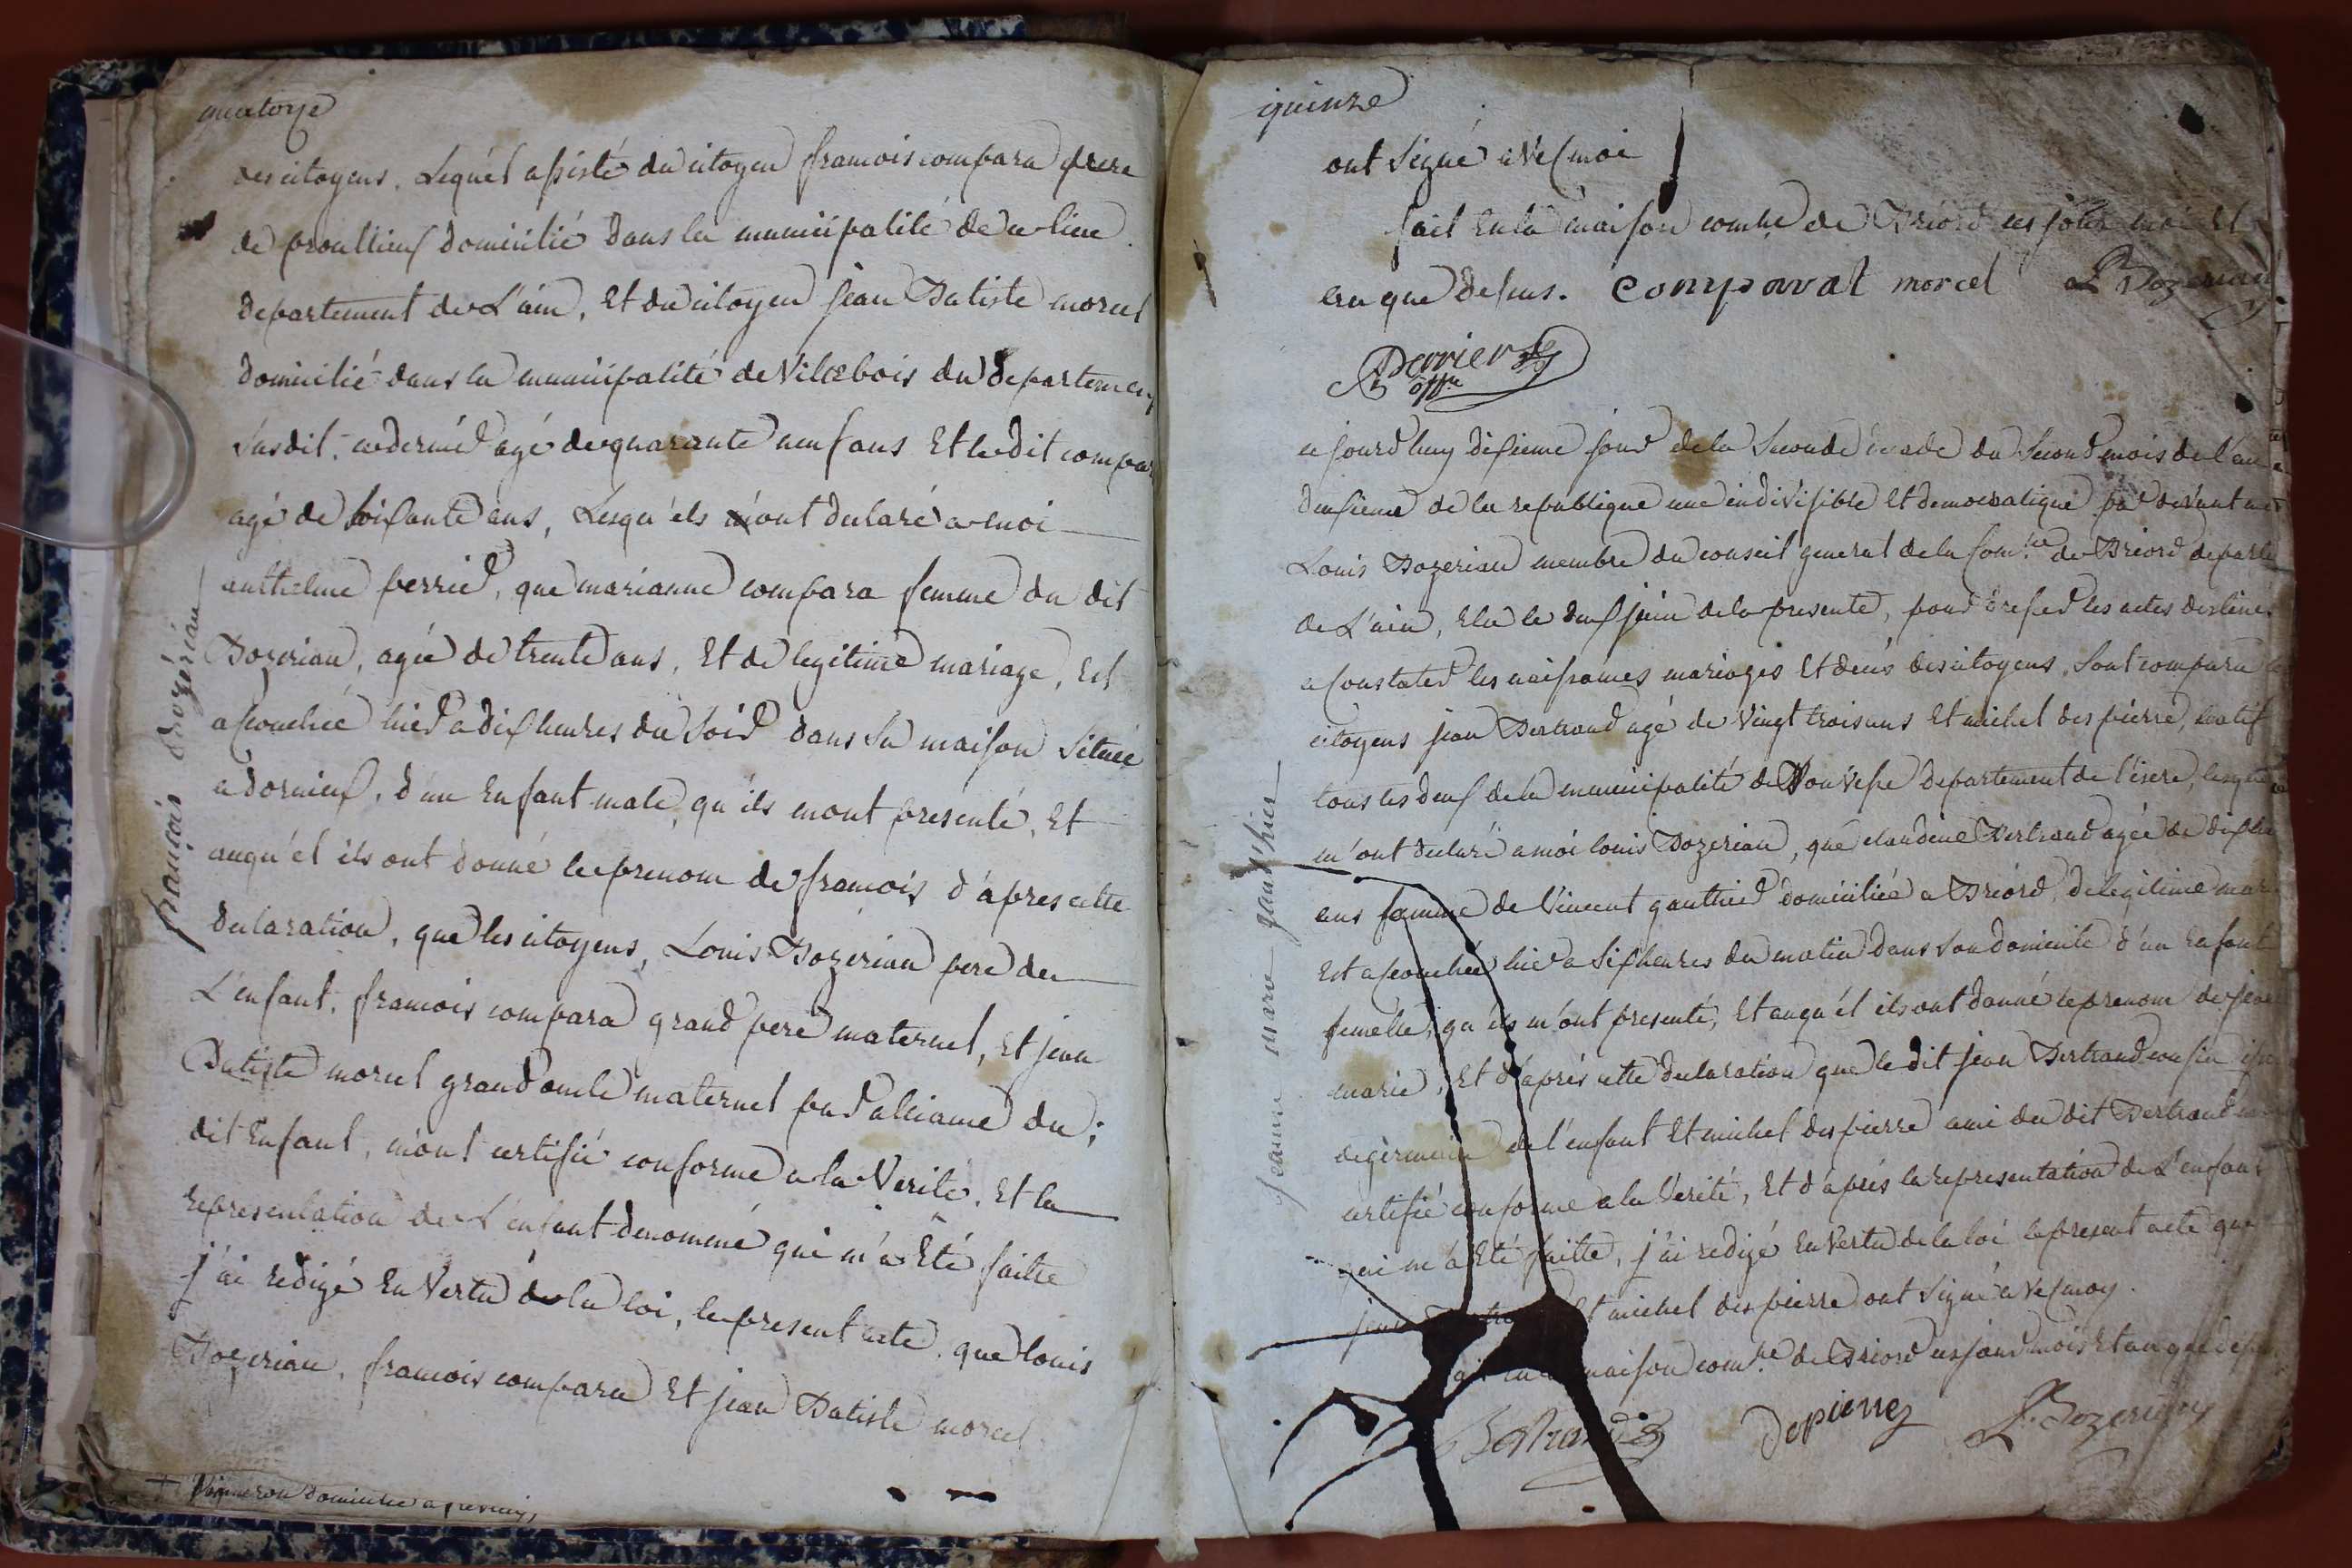 quatorze
des citoyens. Lequ'el assisté du citoyen francois compara frere
de proullieux domicilié dans la municipalité de ce lieu
departement de L'ain, Et du citoyen jean Batiste morcel
domicilié dans la municipalité de Villebois du departement
susdit. ce dernier agé de quarante neuf ans Et le dit compara
agé de soixante ans, Lesqu'els m'ont declaré a moi
anthelme perrier, que marianne compara femme du dit
Bozerian, agée de trente ans, Et de legitime mariage, Est
acouchée hier a dix heures du soir dans sa maison située
a dornieux, d'un Enfant male, qu'ils mont presenté, Et
auqu'el ils ont donné le prenom de francois d'apres cette
declaration, que les citoyens, Louis Bozerian pere de
L'enfant, francois compara grand pere maternel, Et jean
Batiste morcel grand oncle maternel par alliance du;
dit Enfant, m'ont certifié conforme a la Verité. Et la
representation de L'enfant denommé qui m'a Eté faitte
j'ai redigé En Vertu de la loi, le present acte, que louis
Bozerian, francois compara Et jean Batiste morcel
+ Vigneron domicilié a
françois bozérian
quinze
ont signé avec moi
fait En la maison comne de Briord ces jour mois Et
an que dessus. comparat morcel L Bozerian
Perrier
offr
ce jourd'huy dixieme jour de la seconde decade du second mois de l'an
deuxieme de la republique une indivisible Et democratique par devant moi
Louis Bozerian membre du conseil general de la comne de Briord departe
de L'ain, Elu le deux juin de la presente, pour dresser les actes destinés
a constater les naissances mariages Et decés des citoyens, sont comparu
citoyens jean Bertrand agé de Vingt trois ans Et michel des pierre, natif
tous les deux de la municipalité de Bouvesse departement de l'isere, lesquels
m'ont declaré a moi louis Bozerian, que claudine Bertrand agée de
ans femme de Vincent gauthier domiciliée a Briord, de legitime mari
Est acouchée hier a six heures du matin dans son domicile d'un Enfant
femelle, qu'ils m'ont presenté, Et auqu'el ils ont donné le prenom de jeanne
marie, Et d'aprés cette declaration que le dit jean Bertrand cousin
de germain de l'enfant Et michel des pierre ami du dit Bertrand
certifié conforme a la Verité, Et d'aprés la representation de L'enfant
qui m'a Eté faitte, j'ai redigé En Vertu de la loi le present acte que
jean Bertrand Et michel des pierre ont signé avec moy.
fait En la maison comne de Briord ces jour mois Et an que dessus
Bertrand Depierre L. Bozerian
jeanne marie gauthier